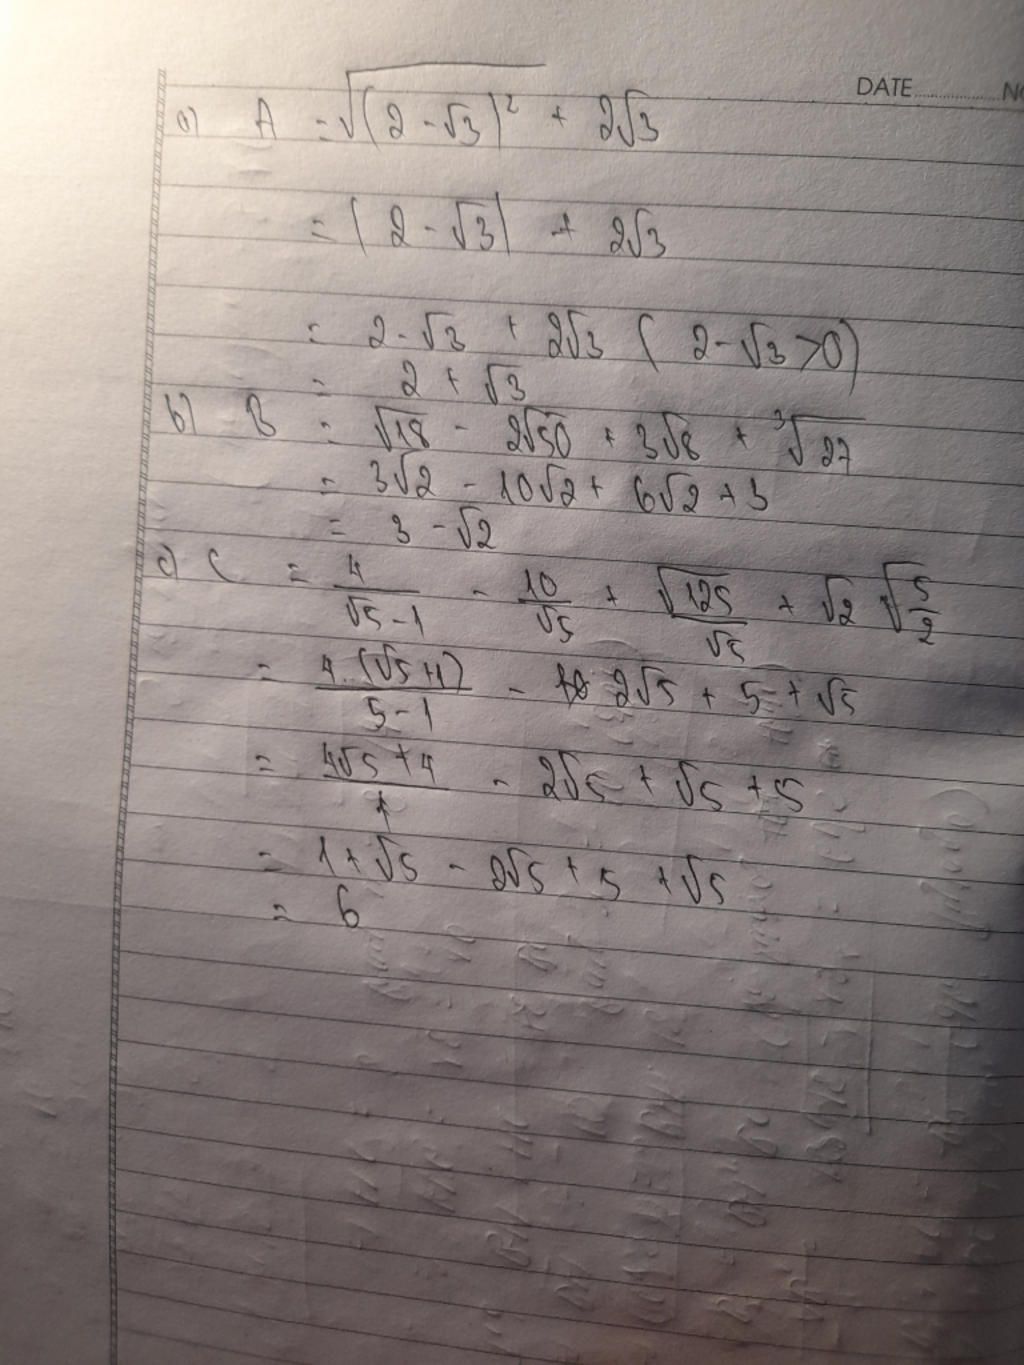 DATE.................... NO
a) A = √(2 - √3)² + 2√3
= |2 - √3| + 2√3
= 2 - √3 + 2√3 (2 - √3 > 0)
= 2 + √3
b) B = √18 - 2√50 + 3√8 + ³√27
= 3√2 - 10√2 + 6√2 + 3
= 3 - √2
c) C = 4/(√5 - 1) - 10/√5 + √125/√5 + √2 √(5/2)
= 4.(√5 + 1)/(5 - 1) - 2√5 + 5 + √5
= (4√5 + 4)/4 - 2√5 + √5 + 5
= 1 + √5 - 2√5 + 5 + √5
= 6